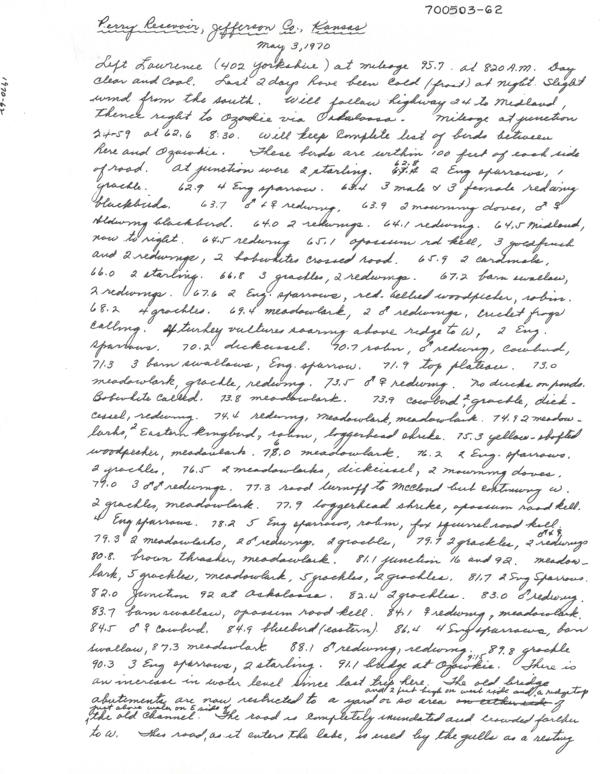 700503-62
Perry Resevoir, Jefferson Co., Kansas
May 3, 1970
Left Lawrence (402 Yorkshire) at mileage 95.7 at 820 A.M. Day
clear and cool. Last 2 days have been cold (frost) at night. Slight
wind from the south. Will follow highway 24 to Midland,
thence right to Ozawkie via Oskaloosa. Mileage at junction
24-59 at 62.6 8:30. Will keep complete list of birds between
here and Ozawkie. These birds are within 100 feet of each side
of road. At junction were 2 starling. 62.8 2 Eng sparrows, 1
grackle. 62.9 4 Eng sparrow. 3 male & 3 female redwing
blackbirds. 63.7 ♂ & ♀ redwing, 63.9 2 mourning doves, ♂ ♀
redwing blackbird. 64.0 2 redwings. 64.1 redwing. 64.5 Midland,
now to right. 64.5 redwing 65.1 opossum rd kill, 3 goldfinch
and 2 redwings, 2 bobwhites crossed road. 65.9 2 cardinals,
66.0 2 starling. 66.8 3 grackles, 2 redwings. 67.2 barn swallow,
2 redwings. 67.6 2 Eng. sparrows, red-bellied woodpecker, robin.
68.2 4 grackles. 69.4 meadowlark, 2 ♂ redwings, cricket frogs
calling. 4 turkey vultures soaring above ridge to W, 2 Eng.
sparrows. 70.2 dickcissel. 70.7 robin, ♂ redwing, cowbird,
71.3 3 barn swallows, Eng. sparrow. 71.9 top plateau. 73.0
meadowlark, grackle, redwing. 73.5 ♂ ♀ redwing. No ducks on ponds.
Bobwhite called. 73.8 meadowlark. 73.9 cowbird 2 grackle, dick-
cissel, redwing. 74.4 redwing, meadowlark, meadowlark. 74.9 2 meadow-
larks, 2 Eastern kingbird, robin, loggerhead shrike. 75.3 yellow-shafted
woodpecker, meadowlark. meadowlark. 76.2 2 Eng. sparrows.
2 grackles, 76.5 2 meadowlarks, dickcissel, 2 mourning doves.
3 ♂♂ redwings. 77.3 road turnoff to McCloud but continuing W.
2 grackles, meadowlark. 77.9 loggerhead shrike, opossum road kill.
4 Eng sparrows. 78.2 5 Eng sparrows, robin, fox squirrel road kill,
79.3 2 meadowlarks, 2 ♂ redwing. 2 grackle, 79.7 2 grackles, 2 ♂ & ♀ redwings
80.8. brown thrasher, meadowlark. 81.1 junction 16 and 92. meadow-
lark, 5 grackles, meadowlark, 5 grackles, 2 grackles. 81.7 2 Eng Sparrows.
82.0 Junction 92 at Oskaloosa. 82.4 2 grackles. 83.0 ♂ redwing.
83.7 barn swallow, opossum road kill. 84.1 ♀ redwing, meadowlark.
84.5 ♂ ♀ cowbird. 84.9 bluebird (eastern). 86.4 4 Eng sparrows, barn
swallow, 87.3 meadowlark 88.1 ♂ redwing, redwing. 89.8 grackle
90.3 3 Eng sparrows, 2 starling. 91.1 bridge at Ozawkie. 9:15 There is
an increase in water level since last trip here. The old bridge
abutments are now restricted to a yard or so area and 2 feet high on west side and a ridge top
just above water on E side of
the old channel. The road is completely inundated and crowded farther
to W. This road, as it enters the lake, is used by the gulls as a resting